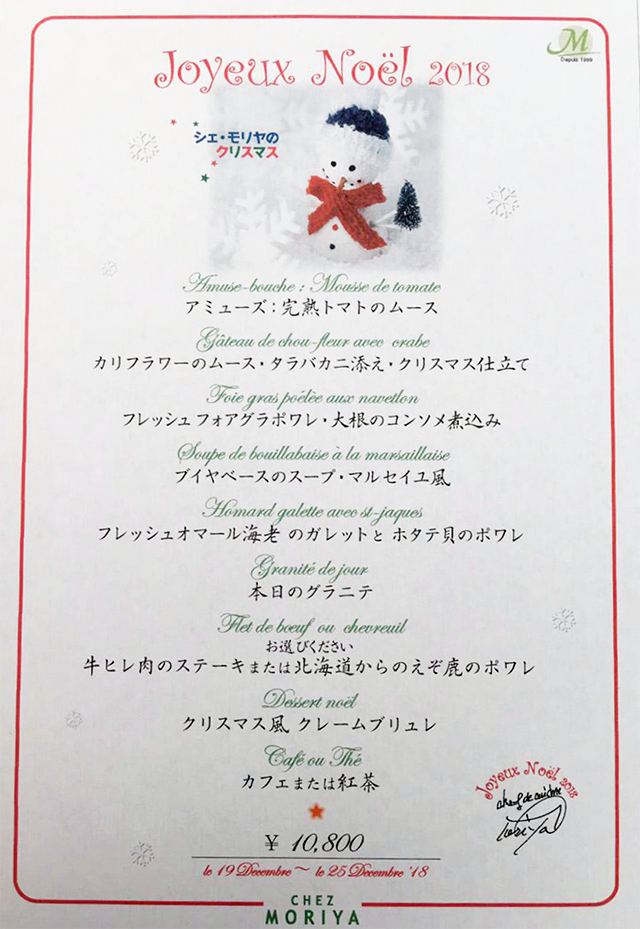 M
Depuis 1999
Joyeux Noël 2018
シェ・モリヤの
クリスマス
Amuse-bouche : Mousse de tomate
アミューズ:完熟トマトのムース
Gâteau de chou-fleur avec crabe
カリフラワーのムース・タラバカニ添え・クリスマス仕立て
Foie gras poélée aux navetlon
フレッシュフォアグラポワレ・大根のコンソメ煮込み
Soupe de bouillabaise à la marsaillaise
ブイヤベースのスープ・マルセイユ風
Homard galette avec st-jaques
フレッシュオマール海老 のガレットと ホタテ貝のポワレ
Granité de jour
本日のグラニテ
Flet de bœuf ou chevreuil
お選びください
牛ヒレ肉のステーキまたは北海道からのえぞ鹿のポワレ
Dessert noël
クリスマス風 クレームブリュレ
Café ou Thé
カフェまたは紅茶
Joyeux Noël 2018
¥ 10,800
le 19 Decembre~ le 25 Decembre '18
CHEZ
MORIYA